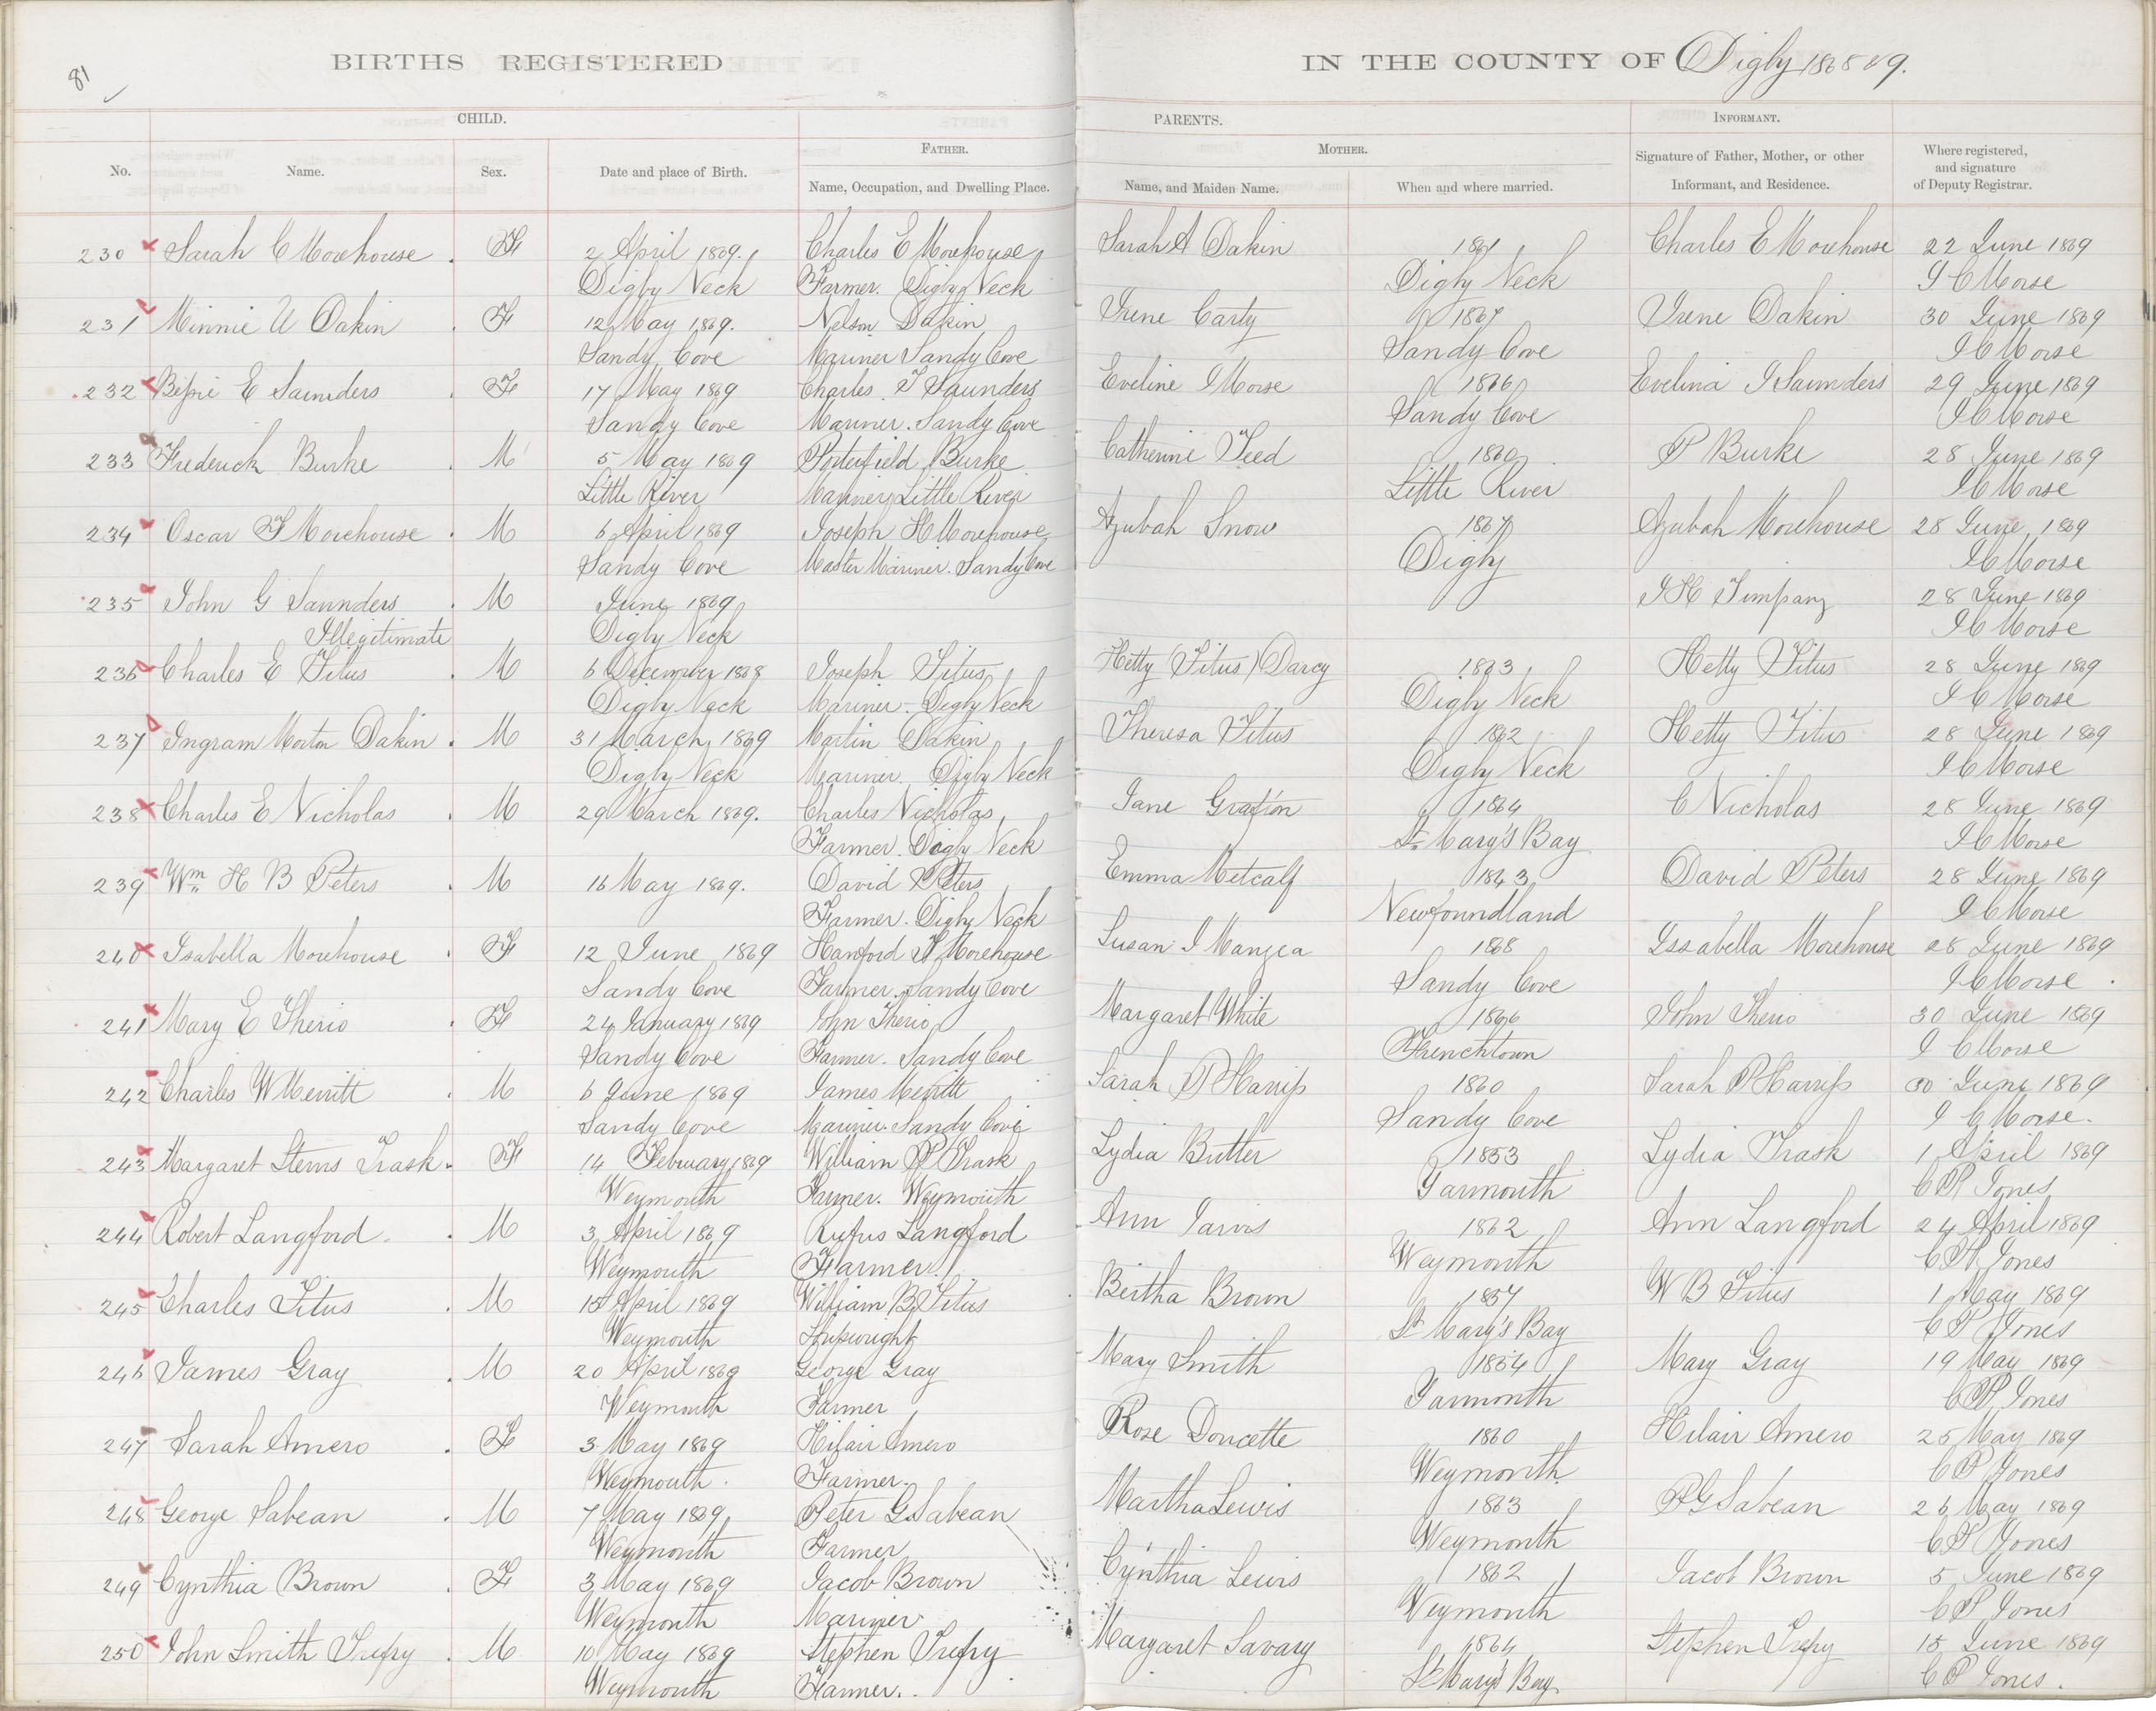 81
BIRTHS REGISTERED
IN THE COUNTY OF Digby 1868 & 9.
CHILD.
PARENTS.
INFORMANT.
FATHER.
MOTHER.
No.
Name.
Sex.
Date and place of Birth.
Name, Occupation, and Dwelling Place.
Name, and Maiden Name.
When and where married.
Signature of Father, Mother, or other Informant, and Residence.
Where registered, and signature of Deputy Registrar.
230 Sarah C Morehouse . F 2 April 1869. Charles E Morehouse Sarah A Dakin 1861 Charles E Morehouse 22 June 1869
Digby Neck Farmer. Digby Neck Digby Neck I C Morse
231 Minnie U Dakin . F 12 May 1869. Nelson Dakin Irene Carty 1867 Irene Dakin 30 June 1869
Sandy Cove Mariner Sandy Cove Sandy Cove I C Morse
232 Bessie E Saunders . F 17 May 1869 Charles T Saunders Eveline I Morse 1866 Evelina I Saunders 29 June 1869
Sandy Cove Mariner. Sandy Cove Sandy Cove I C Morse
233 Frederick Burke . M 5 May 1869 Porterfield Burke Catherine Teed 1860 P Burke 28 June 1869
Little River Mariner Little River Little River I C Morse
234 Oscar F Morehouse . M 6 April 1869 Joseph H Morehouse Azubah Snow 1867 Azubah Morehouse 28 June 1869
Sandy Cove Master Mariner. Sandy Cove Digby I C Morse
235 John G Saunders . M June 1869 I H Timpany 28 June 1869
Illegitimate Digby Neck I C Morse
236 Charles E Titus . M 6 December 1868 Joseph Titus Hetty (Titus) Darcy 1863 Hetty Titus 28 June 1869
Digby Neck Mariner. Digby Neck Digby Neck I C Morse
237 Ingram Morton Dakin . M 31 March 1869 Martin Dakin Theresa Titus 1862 Hetty Titus 28 June 1869
Digby Neck Mariner. Digby Neck Digby Neck I C Morse
238 Charles E Nicholas . M 29 March 1869. Charles Nicholas Jane Grafton 1864 C Nicholas 28 June 1869
Farmer. Digby Neck St. Mary's Bay I C Morse
239 Wm H B Peters . M 16 May 1869. David Peters Emma Metcalf 1843 David Peters 28 June 1869
Farmer. Digby Neck Newfoundland I C Morse
240 Isabella Morehouse . F 12 June 1869 Hanford Morehouse Susan I 1868 Issabella Morehouse 28 June 1869
Sandy Cove Farmer. Sandy Cove Sandy Cove I C Morse .
241 Mary E Therio . F 24 January 1869 John Therio Margaret White 1866 John Therio 30 June 1869
Sandy Cove Farmer. Sandy Cove Frenchtown I C Morse
242 Charles W Merritt . M 6 June 1869 James Merritt Sarah P Harriss 1860 Sarah P Harriss 30 June 1869
Sandy Cove Mariner. Sandy Cove Sandy Cove I C Morse.
243 Margaret Sterns Trask . F 14 February 1869 William P Trask Lydia Butler 1853 Lydia Trask 1 April 1869
Weymouth Farmer. Weymouth Yarmouth C P Jones
244 Robert Langford . M 3 April 1869 Rufus Langford Ann Jarvis 1862 Ann Langford 24 April 1869
Weymouth Farmer. Weymouth C P Jones
245 Charles Titus . M 15 April 1869 William B Titus Bertha Brown 1857 W B Titus 1 May 1869
Weymouth Shipwright St. Mary's Bay C P Jones
246 James Gray . M 20 April 1869 George Gray Mary Smith 1854 Mary Gray 19 May 1869
Weymouth Farmer Yarmouth C P Jones
247 Sarah Amero . F 3 May 1869 Hilair Amero Rose Doucette 1860 Hilair Amero 25 May 1869
Weymouth . Farmer. Weymouth C P Jones
248 George Sabean . M 7 May 1869 Peter G. Sabean Martha Lewis 1863 P G Sabean 26 May 1869
Weymouth Farmer Weymouth C P Jones
249 Cynthia Brown . F 3 May 1869 Jacob Brown Cynthia Lewis 1862 Jacob Brown 5 June 1869
Weymouth Mariner Weymouth C P Jones
250 John Smith Trefry . M 10 May 1869 Stephen Trefry Margaret Savary 1864 Stephen Trefry 15 June 1869
Weymouth Farmer. St Mary's Bay C P Jones .